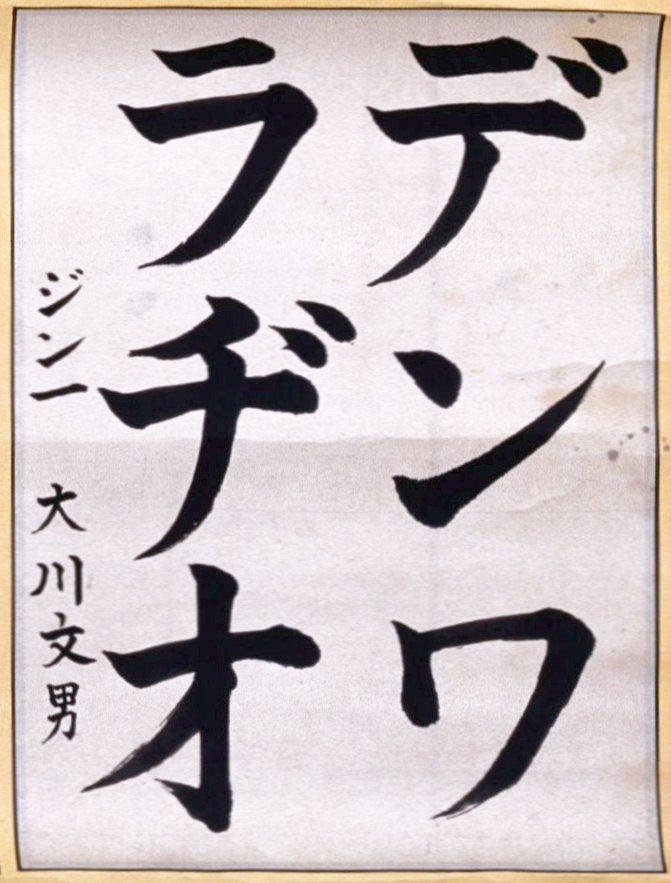 デンワ
ラヂオ
ジン一 大川文男